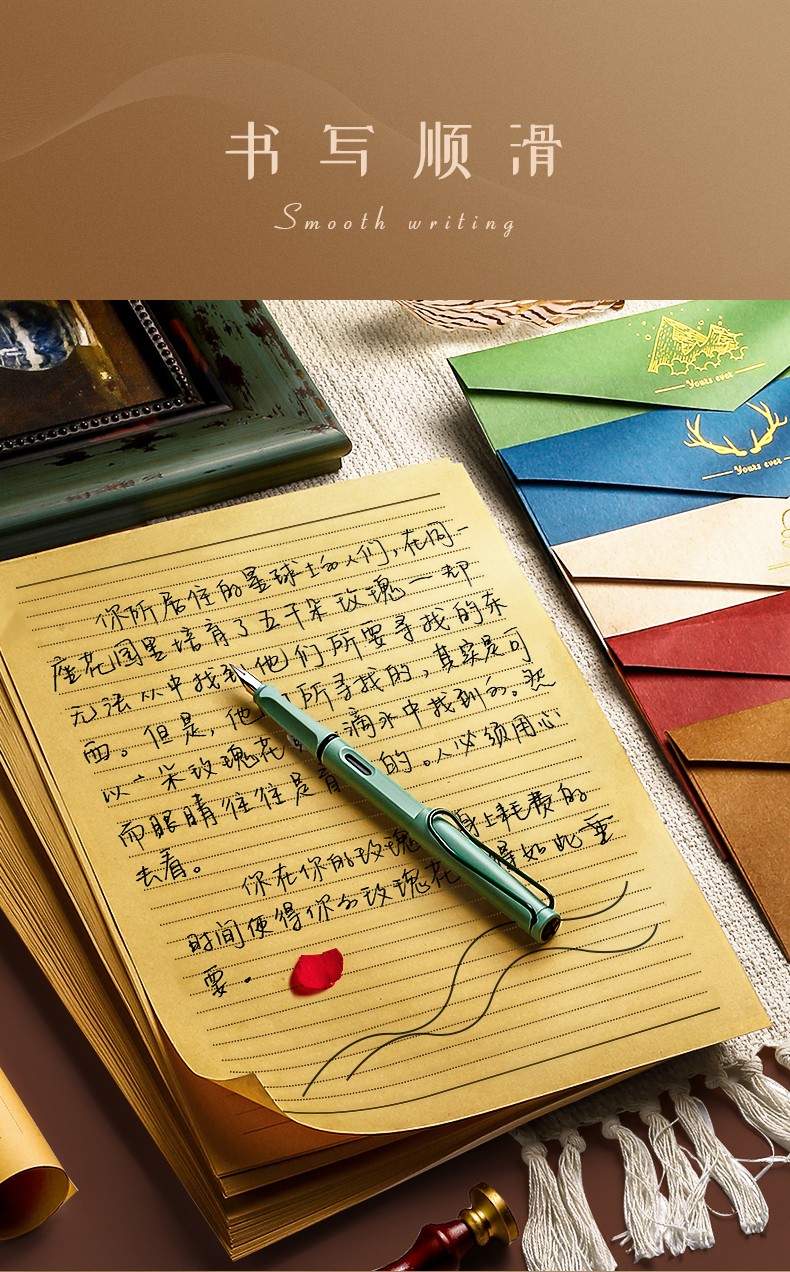 书写顺滑
Smooth writing
Yours ever
Yours ever
你所居住的星球上的人们,在同一
座花园里培育了五千朵玫瑰一却
无法从中找到他们所要寻找的东
西。但是,他所寻找的,其实是可
以一朵玫瑰花滴水中找到的。然
而眼睛往往是盲的。人必须用心
去看。
你在你的玫瑰身上耗费的
时间使得你的玫瑰花得如此重
要.